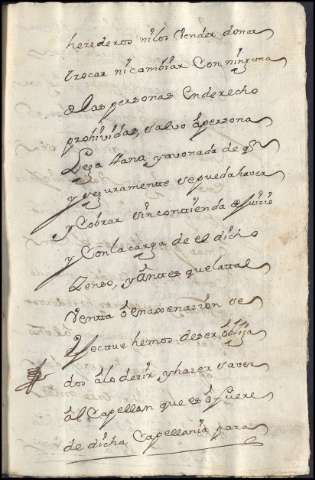 herederos ni los Vender donar
trocar ni cambiar Con ninguna
de las personas en derecho
prohividas, salvo a persona
Lega llana y avonada de qn
y seguramente se pueda haver
y Cobrar sin contienda de juicio
y Con la carga de el dicho
Zenso, y antes que la tal
Venta o enagenasion se
efectue hemos de ser obliga
dos a lo dezir y hazer saver
al Capellan que es o fuere
de dicha Capellania para